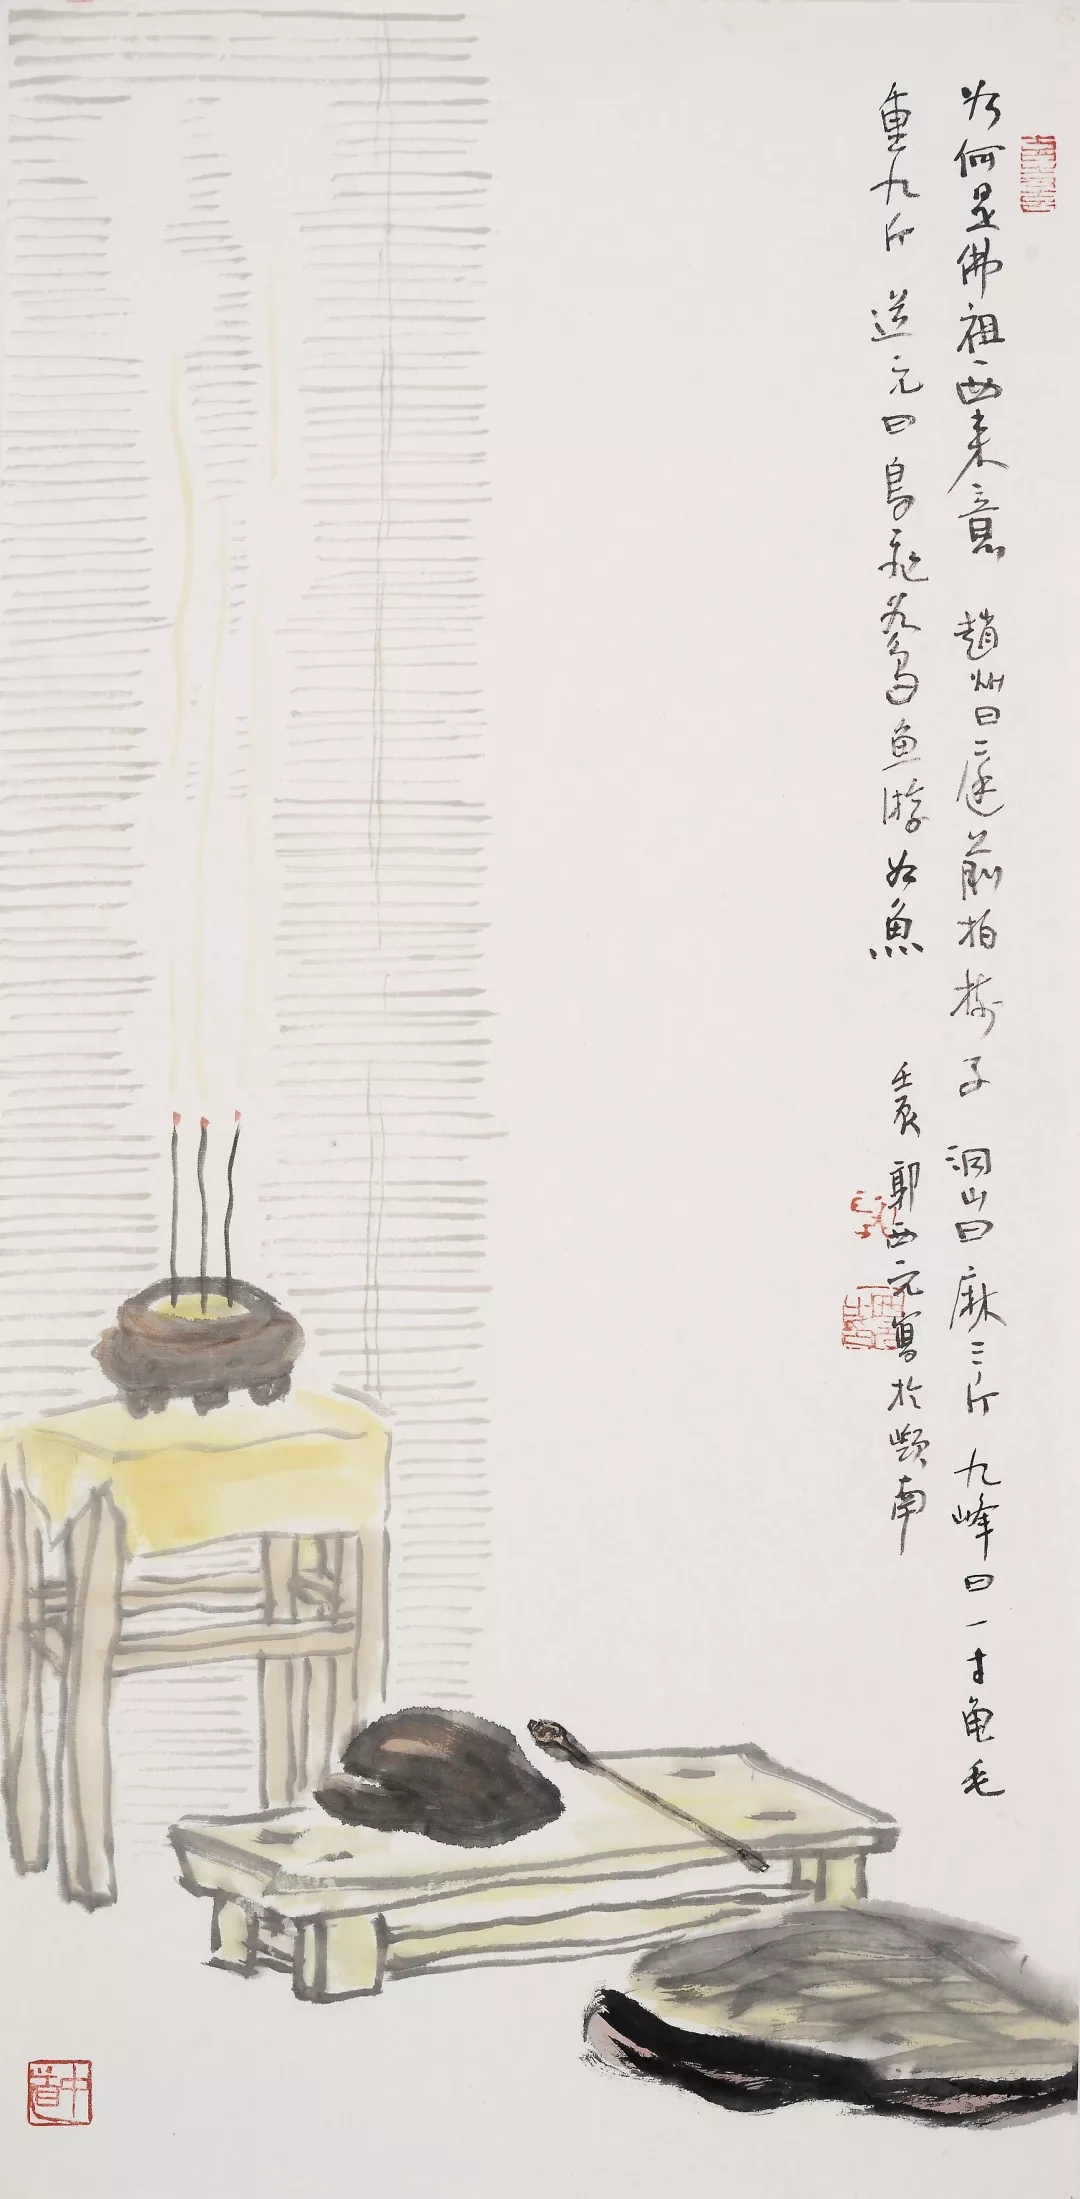 如何是佛祖西来意 趙州曰庭前柏樹子 洞山曰麻三斤 九峰曰一寸龟毛
重九斤 道元曰鳥飛如鳥魚游如魚 壬辰郭西元寫於 南